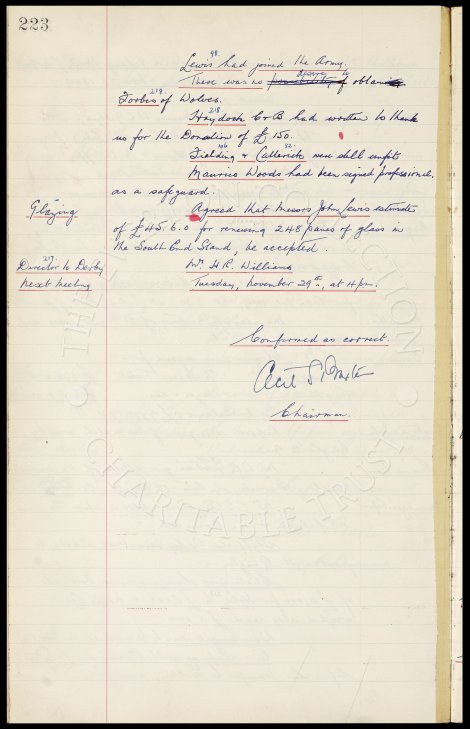 223
98.
Lewis had joined the Army.
There was no possibility of desire to obtain
219.
Forbes of Wolves.
218.
Haydock C & B had written to thank
us for the Donation of £150.
106 52.
Fielding & Catterick were still unfit
Maurice Woods had been signed professional
as a safeguard.
Glazing Agreed that Messrs John Lewis estimate
of £45.6.0 for renewing 248 panes of glass in
the South End Stand, be accepted.
217.
Director to Derby Mr. H.R. Williams
Next meeting Tuesday, November 29th, at 4 pm.
Confirmed as correct.
Cecil S. Baxter
Chairman.
THE COLLECTION
CHARITABLE TRUST